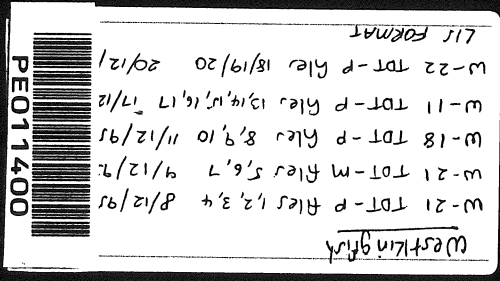 West Kingfish
W-21 TDT-P files 1,2,3,4 8/12/95
W-21 TDT-M files 5,6,7 9/12/9
W-18 TDT-P files 8,9,10 11/12/95
W-11 TDT-P files 13,14,15,16,17 17/12
W-22 TDT-P files 18/19/20 20/12/
LIS FORMAT
PE011400